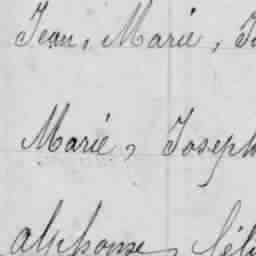 Jean, Marie, Jo
Marie, Joseph
alphonse, Féli